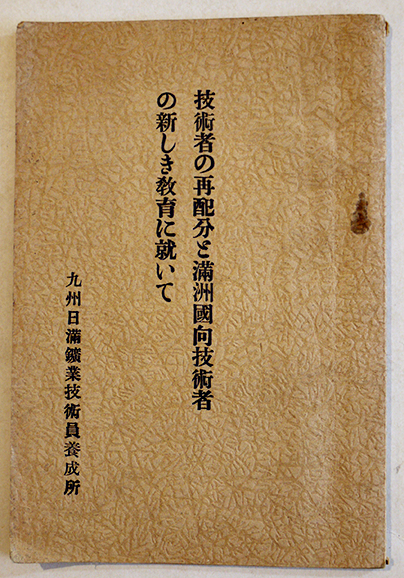 技術者の再配分と滿洲國向技術者
の新しき教育に就いて
九州日滿鑛業技術員養成所